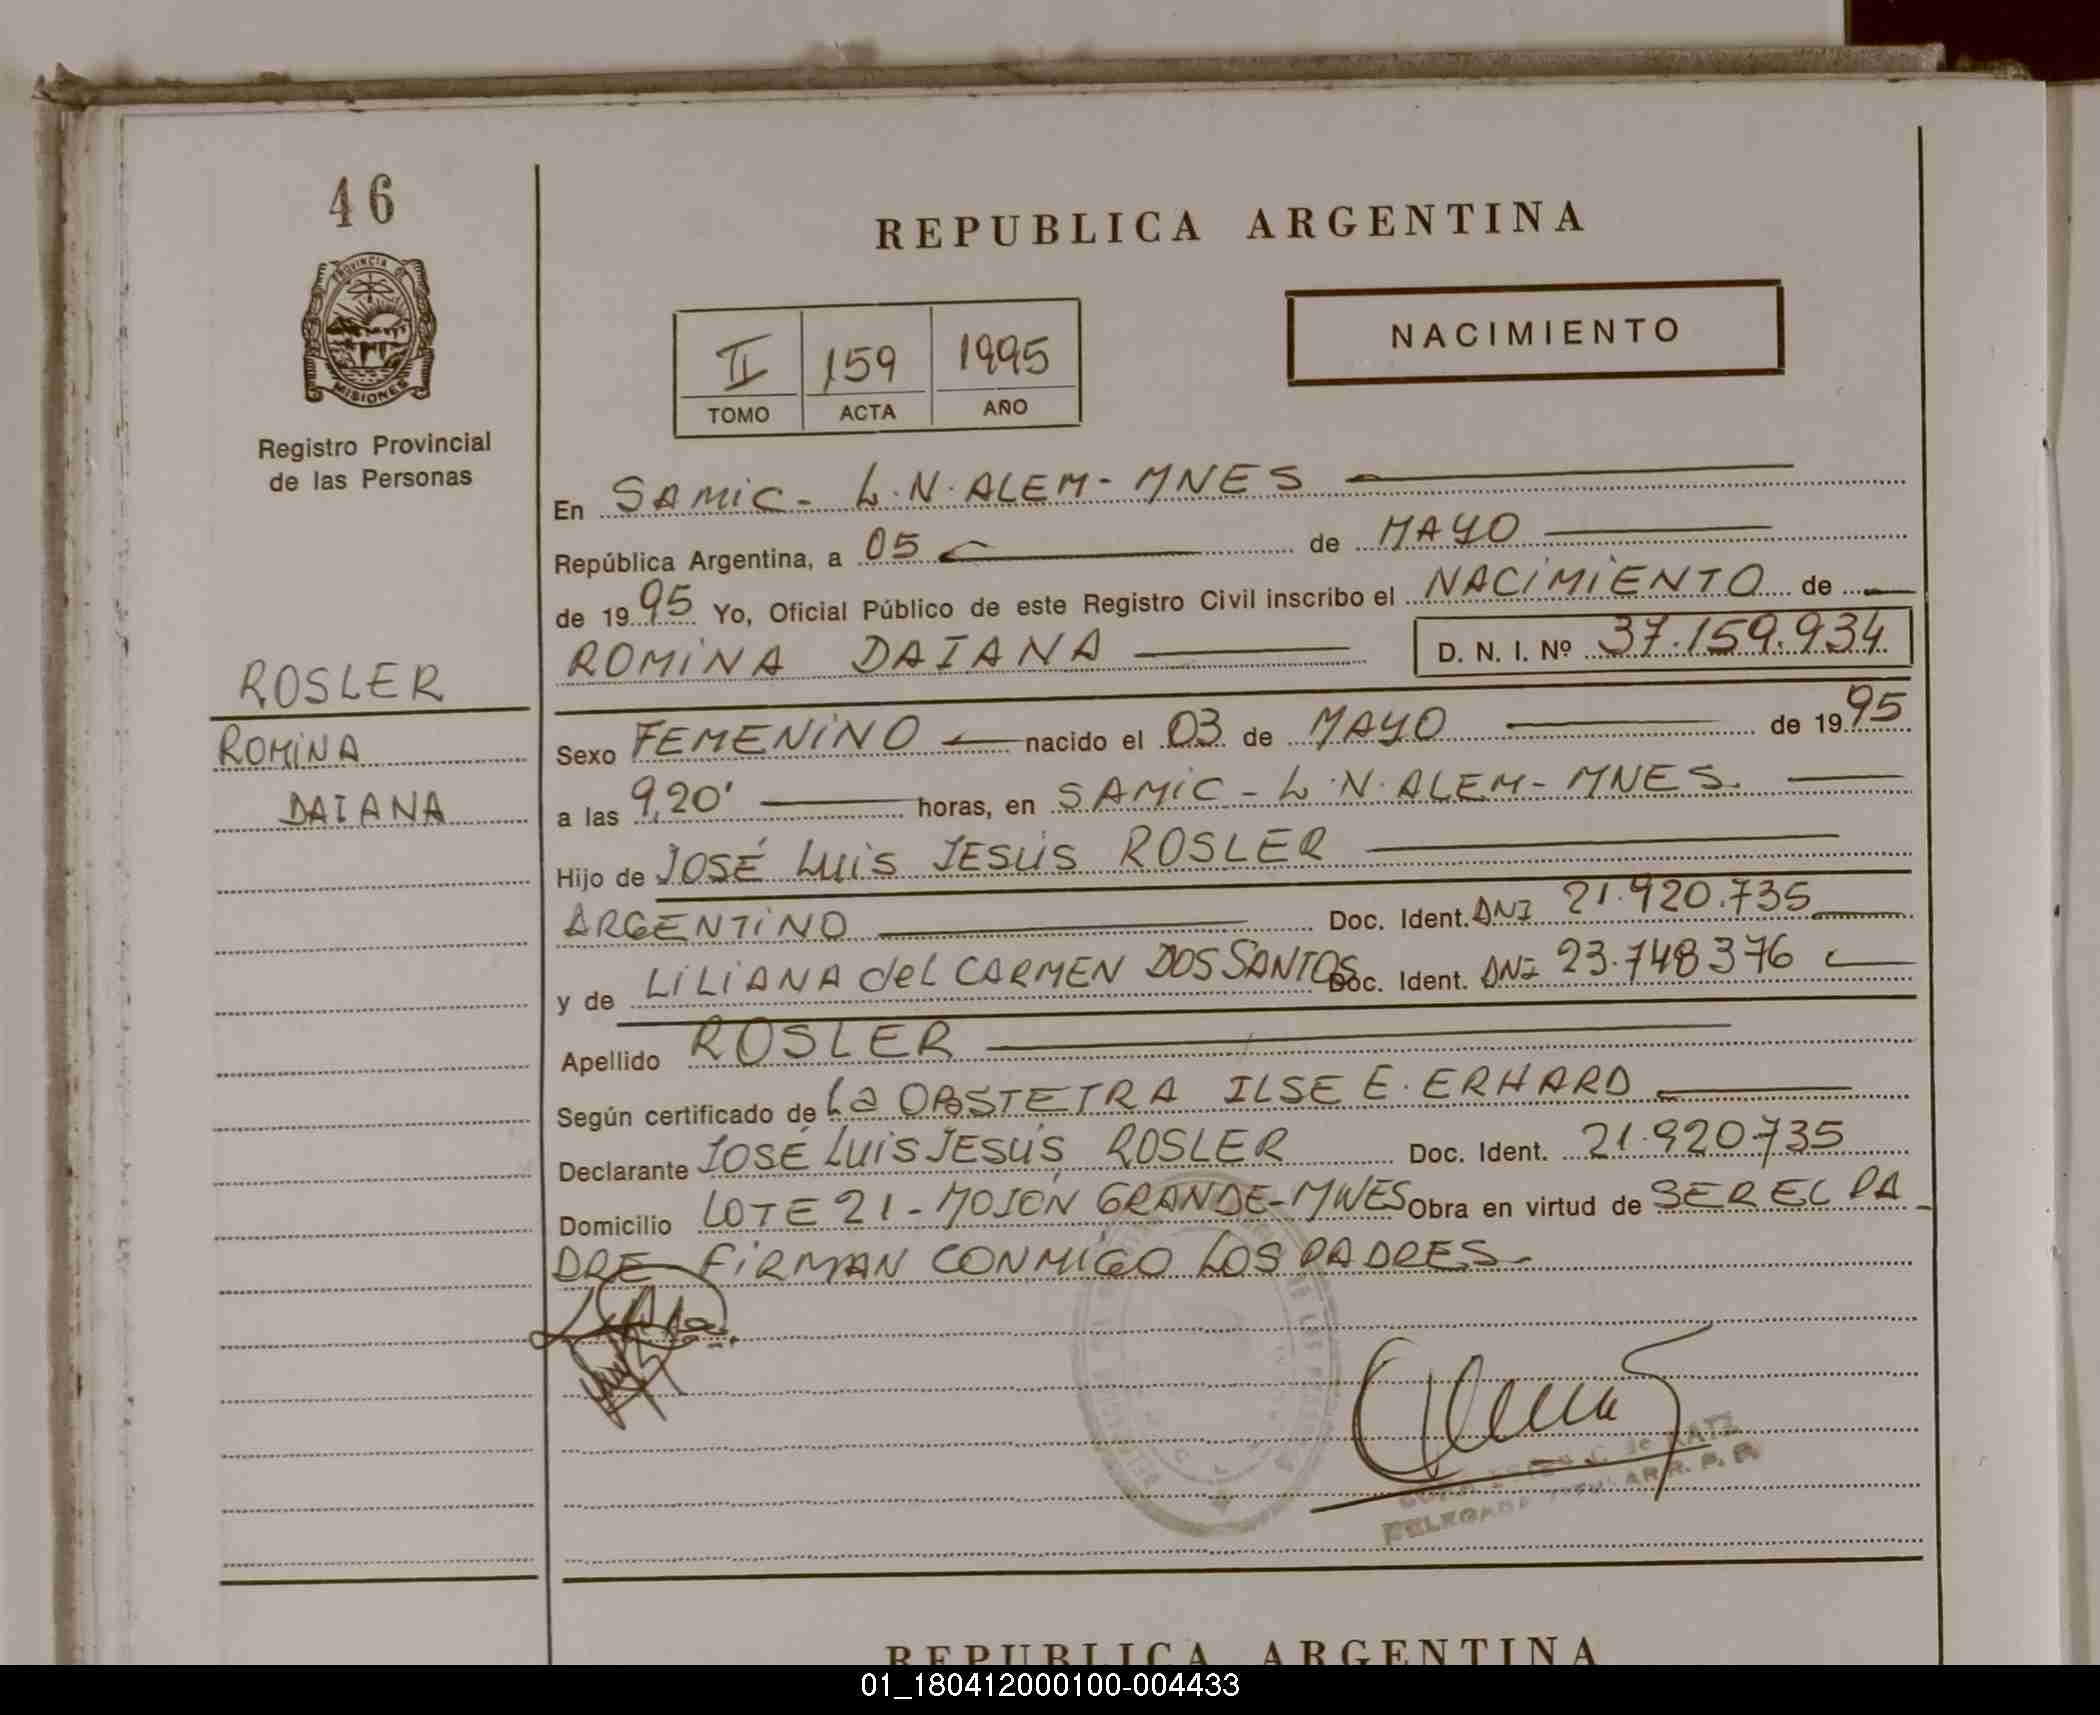 46
REPUBLICA ARGENTINA
PROVINCIA DE
MISIONES
Registro Provincial
de las Personas
NACIMIENTO
II 159 1995
TOMO ACTA AÑO
En SAMIC - L.N. ALEM - MNES
República Argentina, a 05 de MAYO
de 1995 Yo, Oficial Público de este Registro Civil inscribo el NACIMIENTO de
ROMINA DAIANA D. N. I. Nº 37.159.934
ROSLER
ROMINA
DAIANA
Sexo FEMENINO nacido el 03 de MAYO de 1995
a las 9,20' horas, en SAMIC - L.N. ALEM - MNES.
Hijo de JOSÉ LUIS JESÚS ROSLER
ARGENTINO Doc. Ident. DNI 21.920.735
y de LILIANA del CARMEN DOS SANTOS Doc. Ident. DNI 23.748376
Apellido ROSLER
Según certificado de La OBSTETRA ILSE E. ERHARD
Declarante JOSÉ LUIS JESÚS ROSLER Doc. Ident. 21.920.735
Domicilio LOTE 21 - MOJÓN GRANDE - MNES Obra en virtud de SER EL PA -
DRE FIRMAN CONMIGO LOS PADRES.
C. de KATZ
DELEGADA TITULAR R. P. P.
REPUBLICA ARGENTINA
01_180412000100-004433